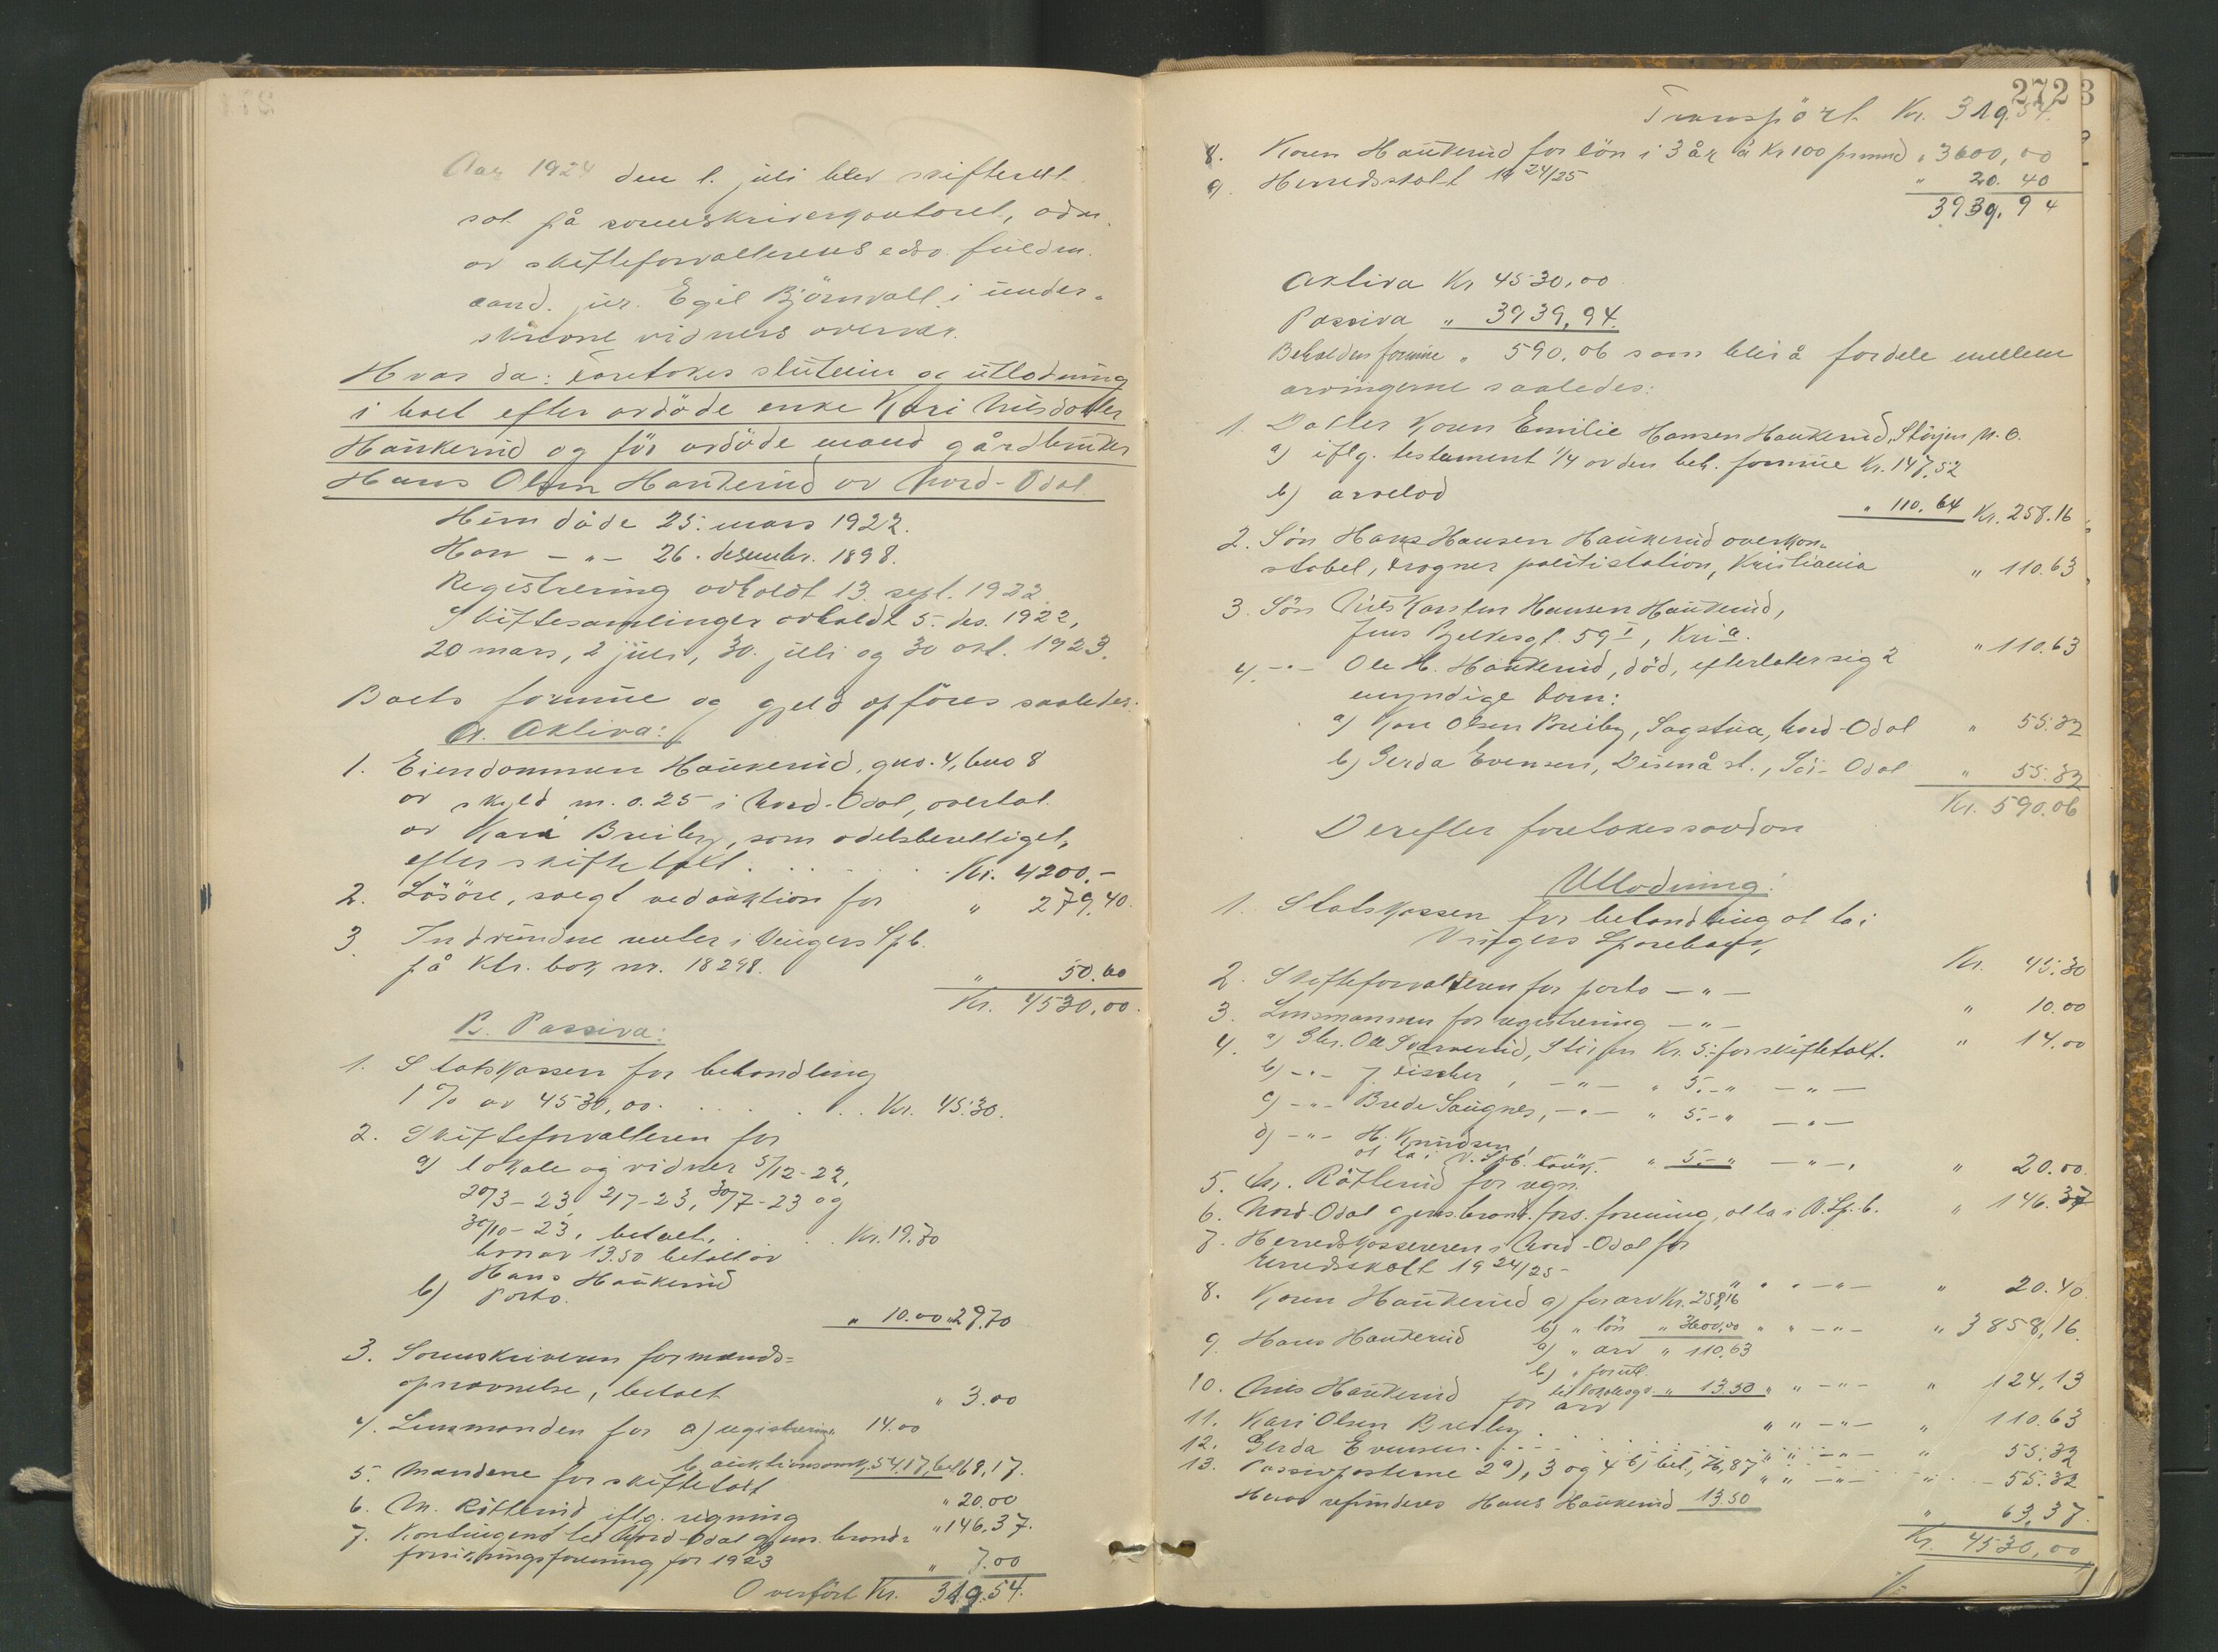 Aar 1924 den 1. juli blev skifteret
sat på sorenskriverkontoret, adm.
av skifteforvalterens eds. fuldm.
cand. jur. Egil Björnvall i under-
skrevne vidners overvær.
Hvor da: foretokes slutning og utlodning
i boet efter avdöde enke Kari Nilsdatter
Haukerud og för avdöde mand gårdbruker
Hans Olsen Haukerud av Nord-Odal.
Hun döde 25. mars 1922.
Han — „ — 26. desember. 1898.
Registrering avholdt 13. sept. 1922
Skiftesamlinger avholdt 5. des. 1922,
20 mars, 2 juli, 30. juli og 30 okt. 1923.
Boets formue og gjeld opföres saaledes:
A. Aktiva:
1. Eiendommen Haukerud, gno. 4, bno 8
av skyld m. 0.25 i Nord-Odal, overtat
av Kari Breiby, som odelsberettiget,
efter skiftetakt . . . . . . Kr. 4200.-
2. Lösöre, solgt ved auktion for „ 279,40.
3 Indvundne renter i Vingers Spb.
på Ktr. bok nr. 18298. „ 50.60
Kr. 4530,00.
B. Passiva:
1. Statskassen for behandling
1 % av 4530,00. . . . . . . Kr. 45.30.
2. Skifteforvalteren for
a) lokale og vidner 5/12-22,
20/3-23 2/7-23, 30/7-23 og
30/10-23, betalt, . . . Kr. 19.70
hvorav 13.50 betalt av
Hans Haukerud
b) Porto. „ 10.00 „ 29.70
3. Sorenskriveren for mands=
opnævnelse, betalt „ 3.00
4. Lensmanden for a) registrering. 14.00
b, auktionsomk, 54,17, bet 68,17.
5. Mændene for skiftetakt „ 20.00
6. M. Rötterud iflg. regning „ 146.37.
7. Kontingent til Nord-Odal gjens. brand=
forsikringsforening for 1923 „ 7.00
Overfört Kr. 319.54.
272 3
Transpört Kr. 319.54.
8. Karen Haukerud for lön i 3 år à Kr 100 pr mnd „ 3600,00
9. Herredsskatt 19 24/25 „ 20.40
3939.94
Aktiva Kr 4530,00
Passiva „ 3939,94.
Beholden formue „ 590,06 som blir å fordele mellem
arvingerne saaledes:
1. Datter Karen Emilie Hansen Haukerud, Störjen N. O.
a) iflg. testament 1/4 av den beh. formue Kr. 147,52
b) arvelod „ 110.64 Kr. 258.16
2. Sön Hans Hansen Haukerud overkon-
stabel, Frogner politistation, Kristiania „ 110.63
3. Sön Nils Karsten Hansen Haukerud,
Jens Bjelkesgt. 59 I, Kria. „ 110.63
4. — „ — Ole H. Haukerud, död, efterlater sig 2
umyndige barn:
a) Kari Olsen Breiby, Sagstua, Nord-Odal „ 55.32
b) Gerda Evensen, Disenå st., Sör-Odal „ 55.32
Kr. 590.06
Derefter foretokes saadan
Utlodning:
1. Statskassen for behandling at ta i
Vingers Sparebank, Kr. 45.30
2. Skifteforvalteren for porto — „ — „ 10.00
3. Lensmannen for registrering — „ — „ 14.00
4. a) Gbr. Ole Skarverud, Stirjen Kr. 5.- for skiftetakt.
b) — „ — J. Fischer, — „ — „ 5.- „ — „ —
c) — „ — Brede Saugnes, — „ — „ 5.- „ — „ —
d) — „ — H. Knudsen „ 5.- „ — „ —. „ 20.00.
at ta i V. Spb.
5. M. Rötterud for regn. „ 146.37
6. Nord-Odal gjens. brand. fors. forening, at ta i V. Sp. b.
7. Herredskassereren i Nord-Odal for
herredsskatt 19 24/25 „ „ — „ — „ 20.40.
8. Karen Haukerud a) for arv Kr. 258,16
b) „ lön „ 3600,00 „ „ — „ — „ 3858,16.
9. Hans Haukerud a) „ arv „ 110,63
b) „ forutl.
til lokale og v. „ 13.50 „ „ — „ — „ 124,13
10. Nils Haukerud for arv „ „ — „ — „ 110.63
11. Kari Olsen Breiby . . . „ „ — „ — „ 55.32
12. Gerda Evensen . . . . „ „ — „ — „ 55.32
13. Passivposterne 2 a), 3 og 4 b) bet., 76,87
Herav refunderes Hans Haukerud 13.50 „ 63,37.
Kr. 4530,00